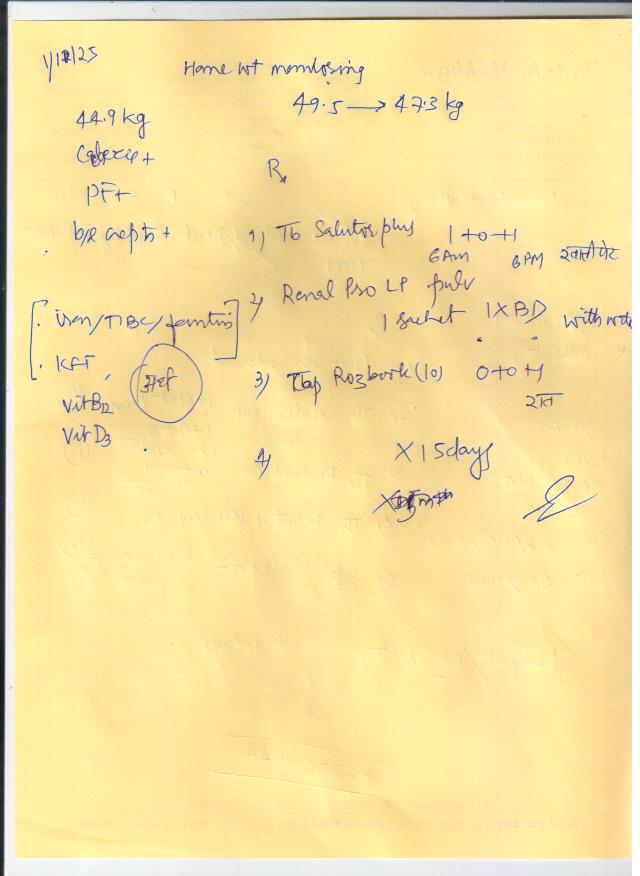 1/12/25
Home wt monitoring
49.5 → 47.3 kg
44.9 kg
+
PF+
+
Rx
1) Tb Salutor plus 1+0+1
6AM 6PM खाली पेट
2) Renal Pro LP pulv
1 sachet 1XBD with
3) Tap Rozbork (10) 0+0+1
रात
4)
X 15 days
iron/TIBC/
KFT
Vit B12
Vit D3